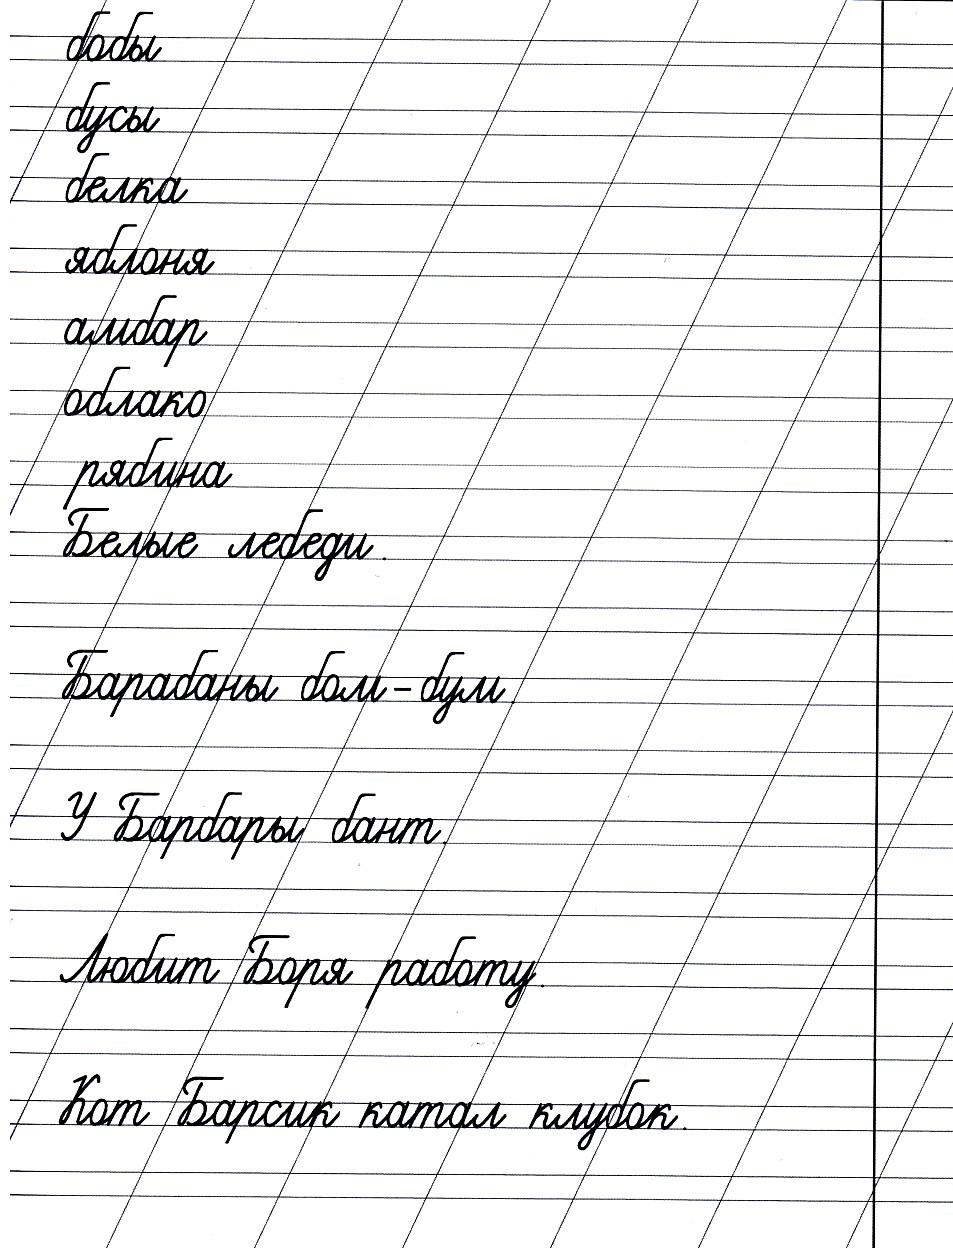 бобы
бусы
белка
яблоня
амбар
облако
рябина
Белые лебеди.
Барабаны бом-бум.
У Барбары бант.
Любит Боря работу.
Кот Барсик катал клубок.